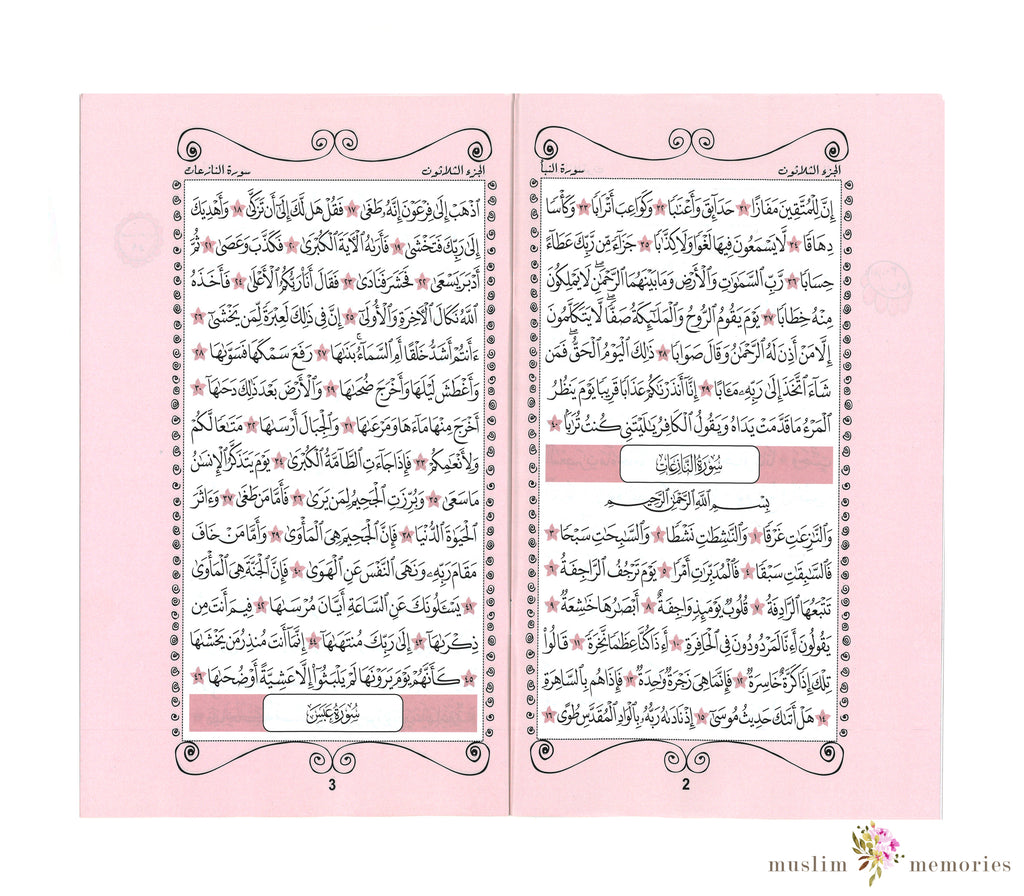 الجزء الثلاثون
سورة النبأ
إِنَّ لِلْمُتَّقِينَ مَفَازًا ٣١ حَدَآئِقَ وَأَعْنَٰبًا ٣٢ وَكَوَاعِبَ أَتْرَابًا ٣٣ وَكَأْسًا
دِهَاقًا ٣٤ لَّا يَسْمَعُونَ فِيهَا لَغْوًا وَلَا كِذَّٰبًا ٣٥ جَزَآءً مِّن رَّبِّكَ عَطَآءً
حِسَابًا ٣٦ رَّبِّ السَّمَٰوَٰتِ وَالْأَرْضِ وَمَا بَيْنَهُمَا الرَّحْمَٰنِ ۖ لَا يَمْلِكُونَ
مِنْهُ خِطَابًا ٣٧ يَوْمَ يَقُومُ الرُّوحُ وَالْمَلَٰٓئِكَةُ صَفًّا ۖ لَّا يَتَكَلَّمُونَ
إِلَّا مَنْ أَذِنَ لَهُ الرَّحْمَٰنُ وَقَالَ صَوَابًا ٣٨ ذَٰلِكَ الْيَوْمُ الْحَقُّ ۖ فَمَن
شَآءَ اتَّخَذَ إِلَىٰ رَبِّهِۦ مَـَٔابًا ٣٩ إِنَّآ أَنذَرْنَٰكُمْ عَذَابًا قَرِيبًا يَوْمَ يَنظُرُ
الْمَرْءُ مَا قَدَّمَتْ يَدَاهُ وَيَقُولُ الْكَافِرُ يَٰلَيْتَنِي كُنتُ تُرَٰبًۢا ٤٠
سُورَةُ النَّازِعَاتِ
بِسْمِ اللَّهِ الرَّحْمَٰنِ الرَّحِيمِ
وَالنَّٰزِعَٰتِ غَرْقًا ١ وَالنَّٰشِطَٰتِ نَشْطًا ٢ وَالسَّٰبِحَٰتِ سَبْحًا ٣
فَالسَّٰبِقَٰتِ سَبْقًا ٤ فَالْمُدَبِّرَٰتِ أَمْرًا ٥ يَوْمَ تَرْجُفُ الرَّاجِفَةُ ٦
تَتْبَعُهَا الرَّادِفَةُ ٧ قُلُوبٌ يَوْمَئِذٍ وَاجِفَةٌ ٨ أَبْصَٰرُهَا خَٰشِعَةٌ ٩
يَقُولُونَ أَءِنَّا لَمَرْدُودُونَ فِي الْحَافِرَةِ ١٠ أَءِذَا كُنَّا عِظَٰمًا نَّخِرَةً ١١ قَالُوا
تِلْكَ إِذًا كَرَّةٌ خَاسِرَةٌ ١٢ فَإِنَّمَا هِيَ زَجْرَةٌ وَٰحِدَةٌ ١٣ فَإِذَا هُم بِالسَّاهِرَةِ
١٤ هَلْ أَتَىٰكَ حَدِيثُ مُوسَىٰٓ ١٥ إِذْ نَادَىٰهُ رَبُّهُۥ بِالْوَادِ الْمُقَدَّسِ طُوًى ١٦
2
الجزء الثلاثون
سورة النازعات
اذْهَبْ إِلَىٰ فِرْعَوْنَ إِنَّهُۥ طَغَىٰ ١٧ فَقُلْ هَل لَّكَ إِلَىٰٓ أَن تَزَكَّىٰ ١٨ وَأَهْدِيَكَ
إِلَىٰ رَبِّكَ فَتَخْشَىٰ ١٩ فَأَرَىٰهُ الْآيَةَ الْكُبْرَىٰ ٢٠ فَكَذَّبَ وَعَصَىٰ ٢١ ثُمَّ
أَدْبَرَ يَسْعَىٰ ٢٢ فَحَشَرَ فَنَادَىٰ ٢٣ فَقَالَ أَنَا۠ رَبُّكُمُ الْأَعْلَىٰ ٢٤ فَأَخَذَهُ
اللَّهُ نَكَالَ الْآخِرَةِ وَالْأُولَىٰٓ ٢٥ إِنَّ فِي ذَٰلِكَ لَعِبْرَةً لِّمَن يَخْشَىٰٓ ٢٦
ءَأَنتُمْ أَشَدُّ خَلْقًا أَمِ السَّمَآءُ ۚ بَنَىٰهَا ٢٧ رَفَعَ سَمْكَهَا فَسَوَّىٰهَا ٢٨
وَأَغْطَشَ لَيْلَهَا وَأَخْرَجَ ضُحَىٰهَا ٢٩ وَالْأَرْضَ بَعْدَ ذَٰلِكَ دَحَىٰهَآ ٣٠
أَخْرَجَ مِنْهَا مَآءَهَا وَمَرْعَىٰهَا ٣١ وَالْجِبَالَ أَرْسَىٰهَا ٣٢ مَتَٰعًا لَّكُمْ
وَلِأَنْعَٰمِكُمْ ٣٣ فَإِذَا جَآءَتِ الطَّآمَّةُ الْكُبْرَىٰ ٣٤ يَوْمَ يَتَذَكَّرُ الْإِنسَٰنُ
مَا سَعَىٰ ٣٥ وَبُرِّزَتِ الْجَحِيمُ لِمَن يَرَىٰ ٣٦ فَأَمَّا مَن طَغَىٰ ٣٧ وَءَاثَرَ
الْحَيَوٰةَ الدُّنْيَا ٣٨ فَإِنَّ الْجَحِيمَ هِيَ الْمَأْوَىٰ ٣٩ وَأَمَّا مَنْ خَافَ
مَقَامَ رَبِّهِۦ وَنَهَى النَّفْسَ عَنِ الْهَوَىٰ ٤٠ فَإِنَّ الْجَنَّةَ هِيَ الْمَأْوَىٰ
٤١ يَسْـَٔلُونَكَ عَنِ السَّاعَةِ أَيَّانَ مُرْسَىٰهَا ٤٢ فِيمَ أَنتَ مِن
ذِكْرَىٰهَآ ٤٣ إِلَىٰ رَبِّكَ مُنتَهَىٰهَآ ٤٤ إِنَّمَآ أَنتَ مُنذِرُ مَن يَخْشَىٰهَا
٤٥ كَأَنَّهُمْ يَوْمَ يَرَوْنَهَا لَمْ يَلْبَثُوٓا إِلَّا عَشِيَّةً أَوْ ضُحَىٰهَا ٤٦
سُورَةُ عَبَسَ
3
muslim memories